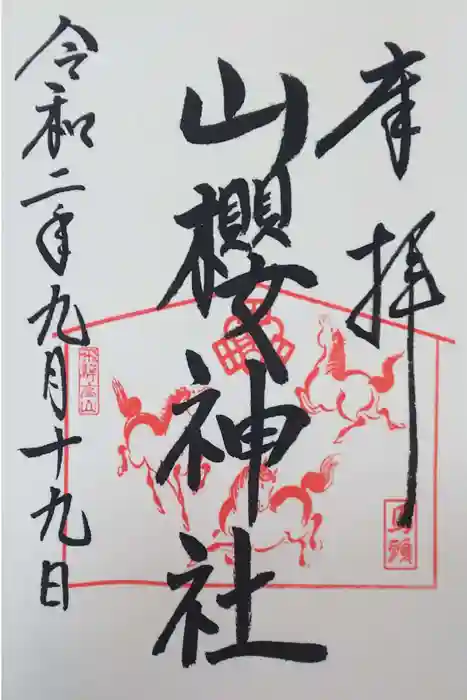 奉拝
山櫻神社
令和二年九月十九日
飛騨高山
馬頭